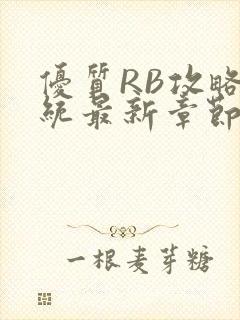 優質RB攻略
統最新章節
一根麦芽糖